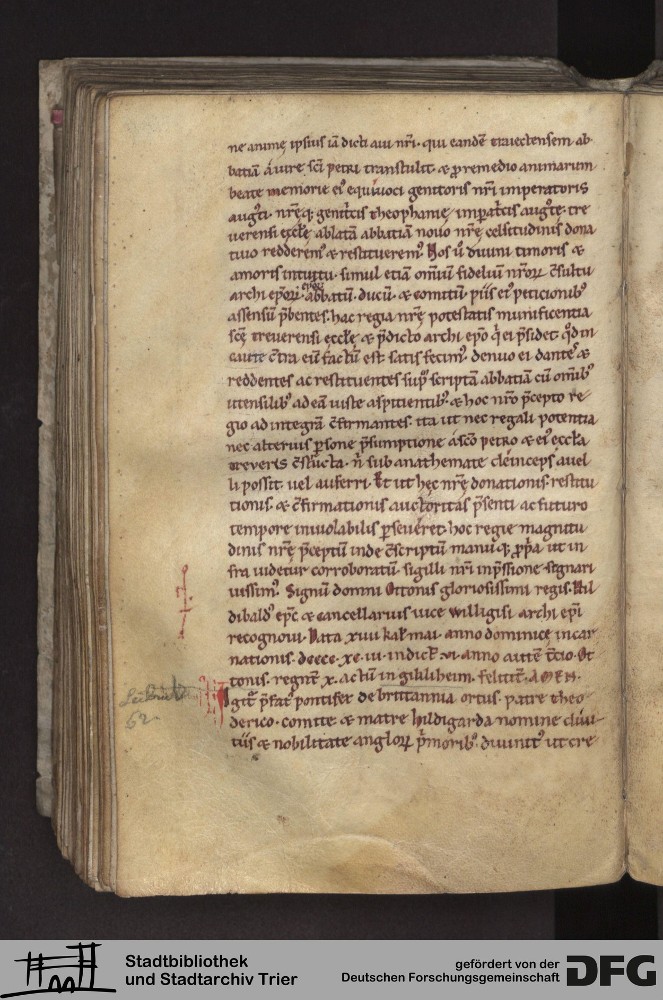 ne animę ipsius iā dicti aui nr̄i. qui eandē traiectensem ab-
batiā á iure sc̄i petri transtulit. & ꝓ remedio animarum
beate memorie ei᷒ equiuoci genitoris nr̄i imperatoris
augꝰti. nr̄ęq; genit͛cis theophanię imꝑat͛cis augꝰtę. tre
uerensi ęcclę ablatā abbatiā nouo nr̄ę celsitudinis dona
tiuo redderemꝰ & restitueremꝰ. Nos ū diuini timoris &
amoris intuitu. simul etiā om̄iū fidelium nr̄oꝝ c̄sultu
archi ep̄oꝝ. ep̄oꝝ abbatū. ducū. & comitū piis eiꝰ peticionibꝰ
assensū p̄bentes. hac regia nr̄ę potestatis munificentia
sc̄ę treuerensi ęcclę & p̄dicto archi ep̄o q̇ ei p̄sidet. qd̄ in
iuste c̄tra eū factū est satis fecimꝰ. denuo ei dantes &
reddentes ac restituentes sup͛ scriptā abbatiā cū om̄ibꝰ
utensilibꝰ ad eā iuste aspicientibꝰ. & hoc nr̄o p̄cepto re-
gio ad integrū c̄firmantes. ita ut nec regali potentia
nec alterius ꝑsone p̄sumptione á sc̄o petro & eiꝰ ęccla
treueris c̄structa. n̄ sub anathemate deinceps auel
li possit uel auferri. Et ut hęc nr̄ę donationis. restitu
tionis. & c̄firmationis auctoritas p̄senti ac futuro
tempore inuiolabilis ꝑseueret. hoc regie magnitu
dinis nr̄ę p̄ceptū inde c̄scriptū manuq; ꝓp̄a ut in
fra uidetur corroboratū sigilli nr̄i inp̄ssione signari
iussimꝰ. Signū domni Ottonis gloriosissimi regis. Hil
dibaldꝰ ep̄c & cancellarius uice willigisi archi ep̄i
recognoui. Data xuiii kal̄ mai. anno dominicę incar
nationis. dcccc. xc. iii. indict̄. ui. anno autē t͛cio. Ot
tonis. regn̄t̄ x. actū in gisilihem. felicit͛. AMEN.
Igit͛ p̄fatꝰ pontifex de brittannia ortus. patre theo-
derico. comite. & matre hildigarda nomine diui-
tiis & nobilitate angloꝝ p̄moribꝰ. diuinitꝰ ut cre-
62.
Stadtbibliothek
und Stadtarchiv Trier
gefördert von der
Deutschen Forschungsgemeinschaft
DFG